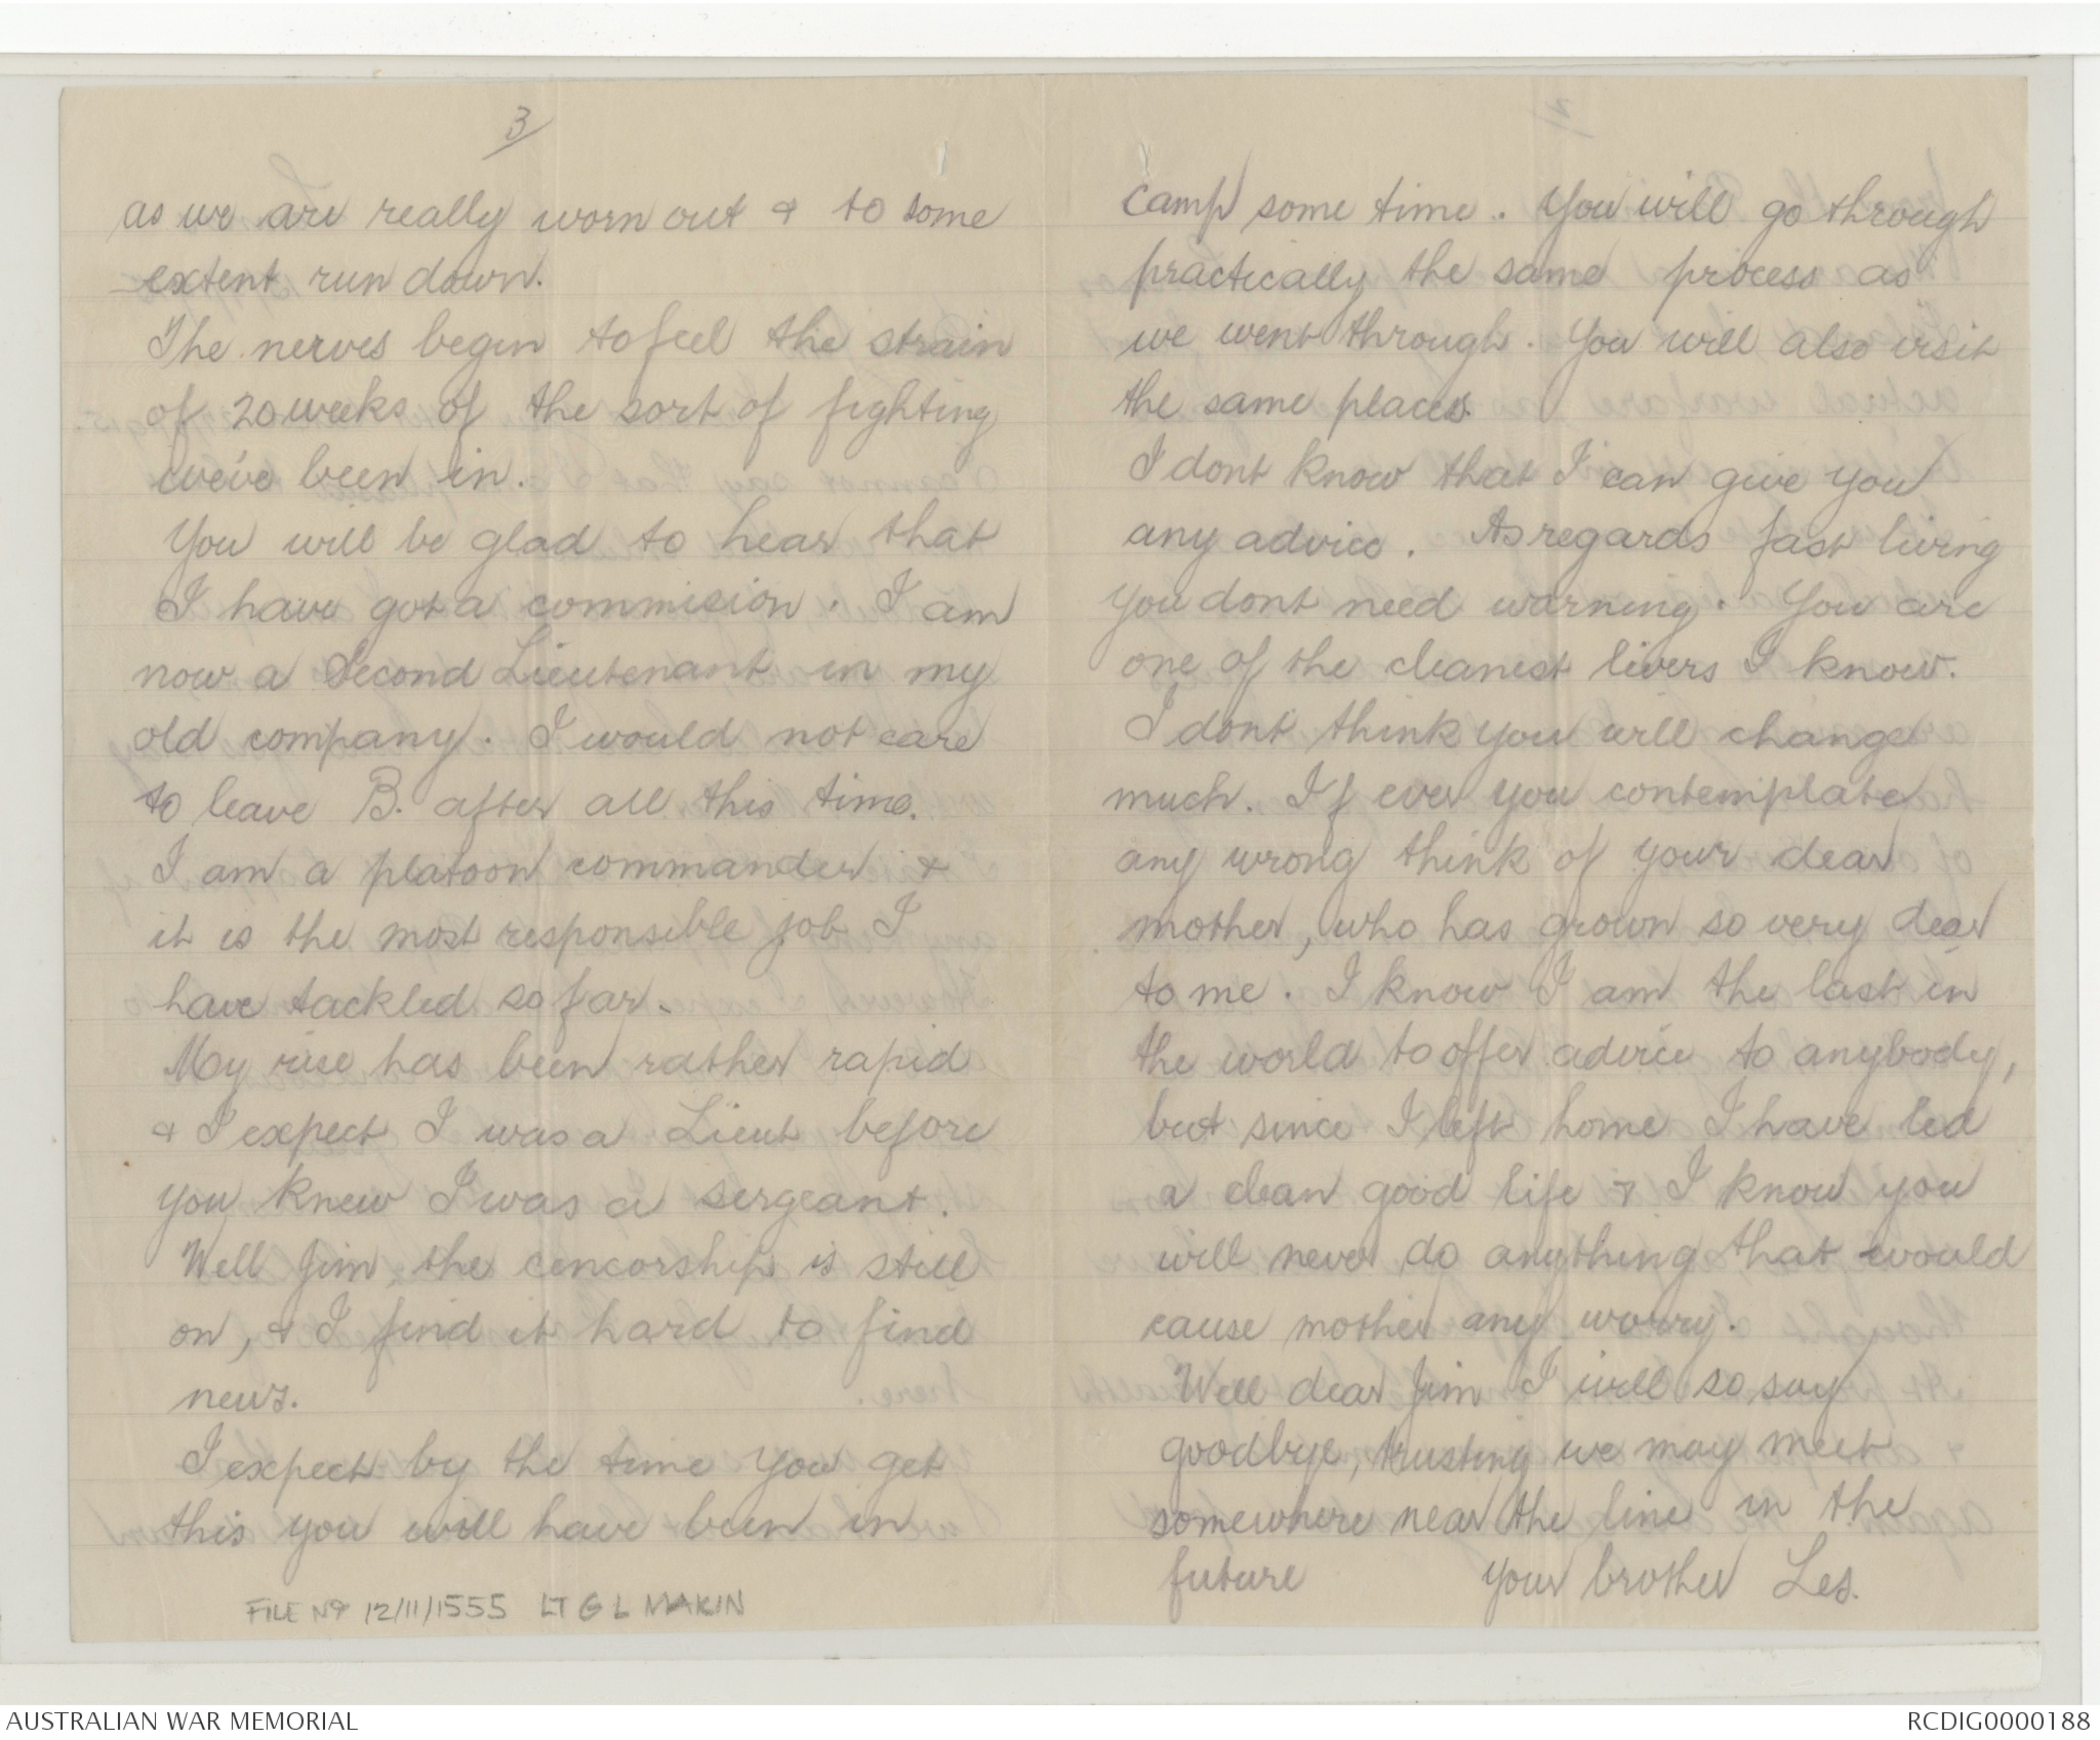 3/
as we are really worn out & to some
extent run down.
The nerves begin to feel the strain
of 20 weeks of the sort of fighting
we've been in.
You will be glad to hear that
I have got a commision. I am
now a Second Lieutenant in my
old company. I would not care
to leave B. after all this time.
I am a platoon commander &
it is the most responsible job I
have tackled so far.
My rise has been rather rapid
& I expect I was a Lieut before
you knew I was a sergeant.
Well Jim, the cencorship is still
on, & I find it hard to find
news.
I expect by the time you get
this you will have been in
FILE No 12/11/1555 LT G L MAKIN
camp some time. You will go through
practically the same process as
we went through. You will also visit
the same places.
I dont know that I can give you
any advice. As regards fast living
you dont need warning. You are
one of the cleanest livers I know.
I dont think you will change
much. If ever you contemplate
any wrong think of your dear
mother, who has grown so very dear
to me. I know I am the last in
the world to offer advice to anybody,
but since I left home I have led
a clean good life & I know you
will never do anything that would
cause mother any worry.
Well dear Jim I will so say
goodbye, trusting we may meet
somewhere near the line in the
future your brother Les.
AUSTRALIAN WAR MEMORIAL
RCDIG0000188